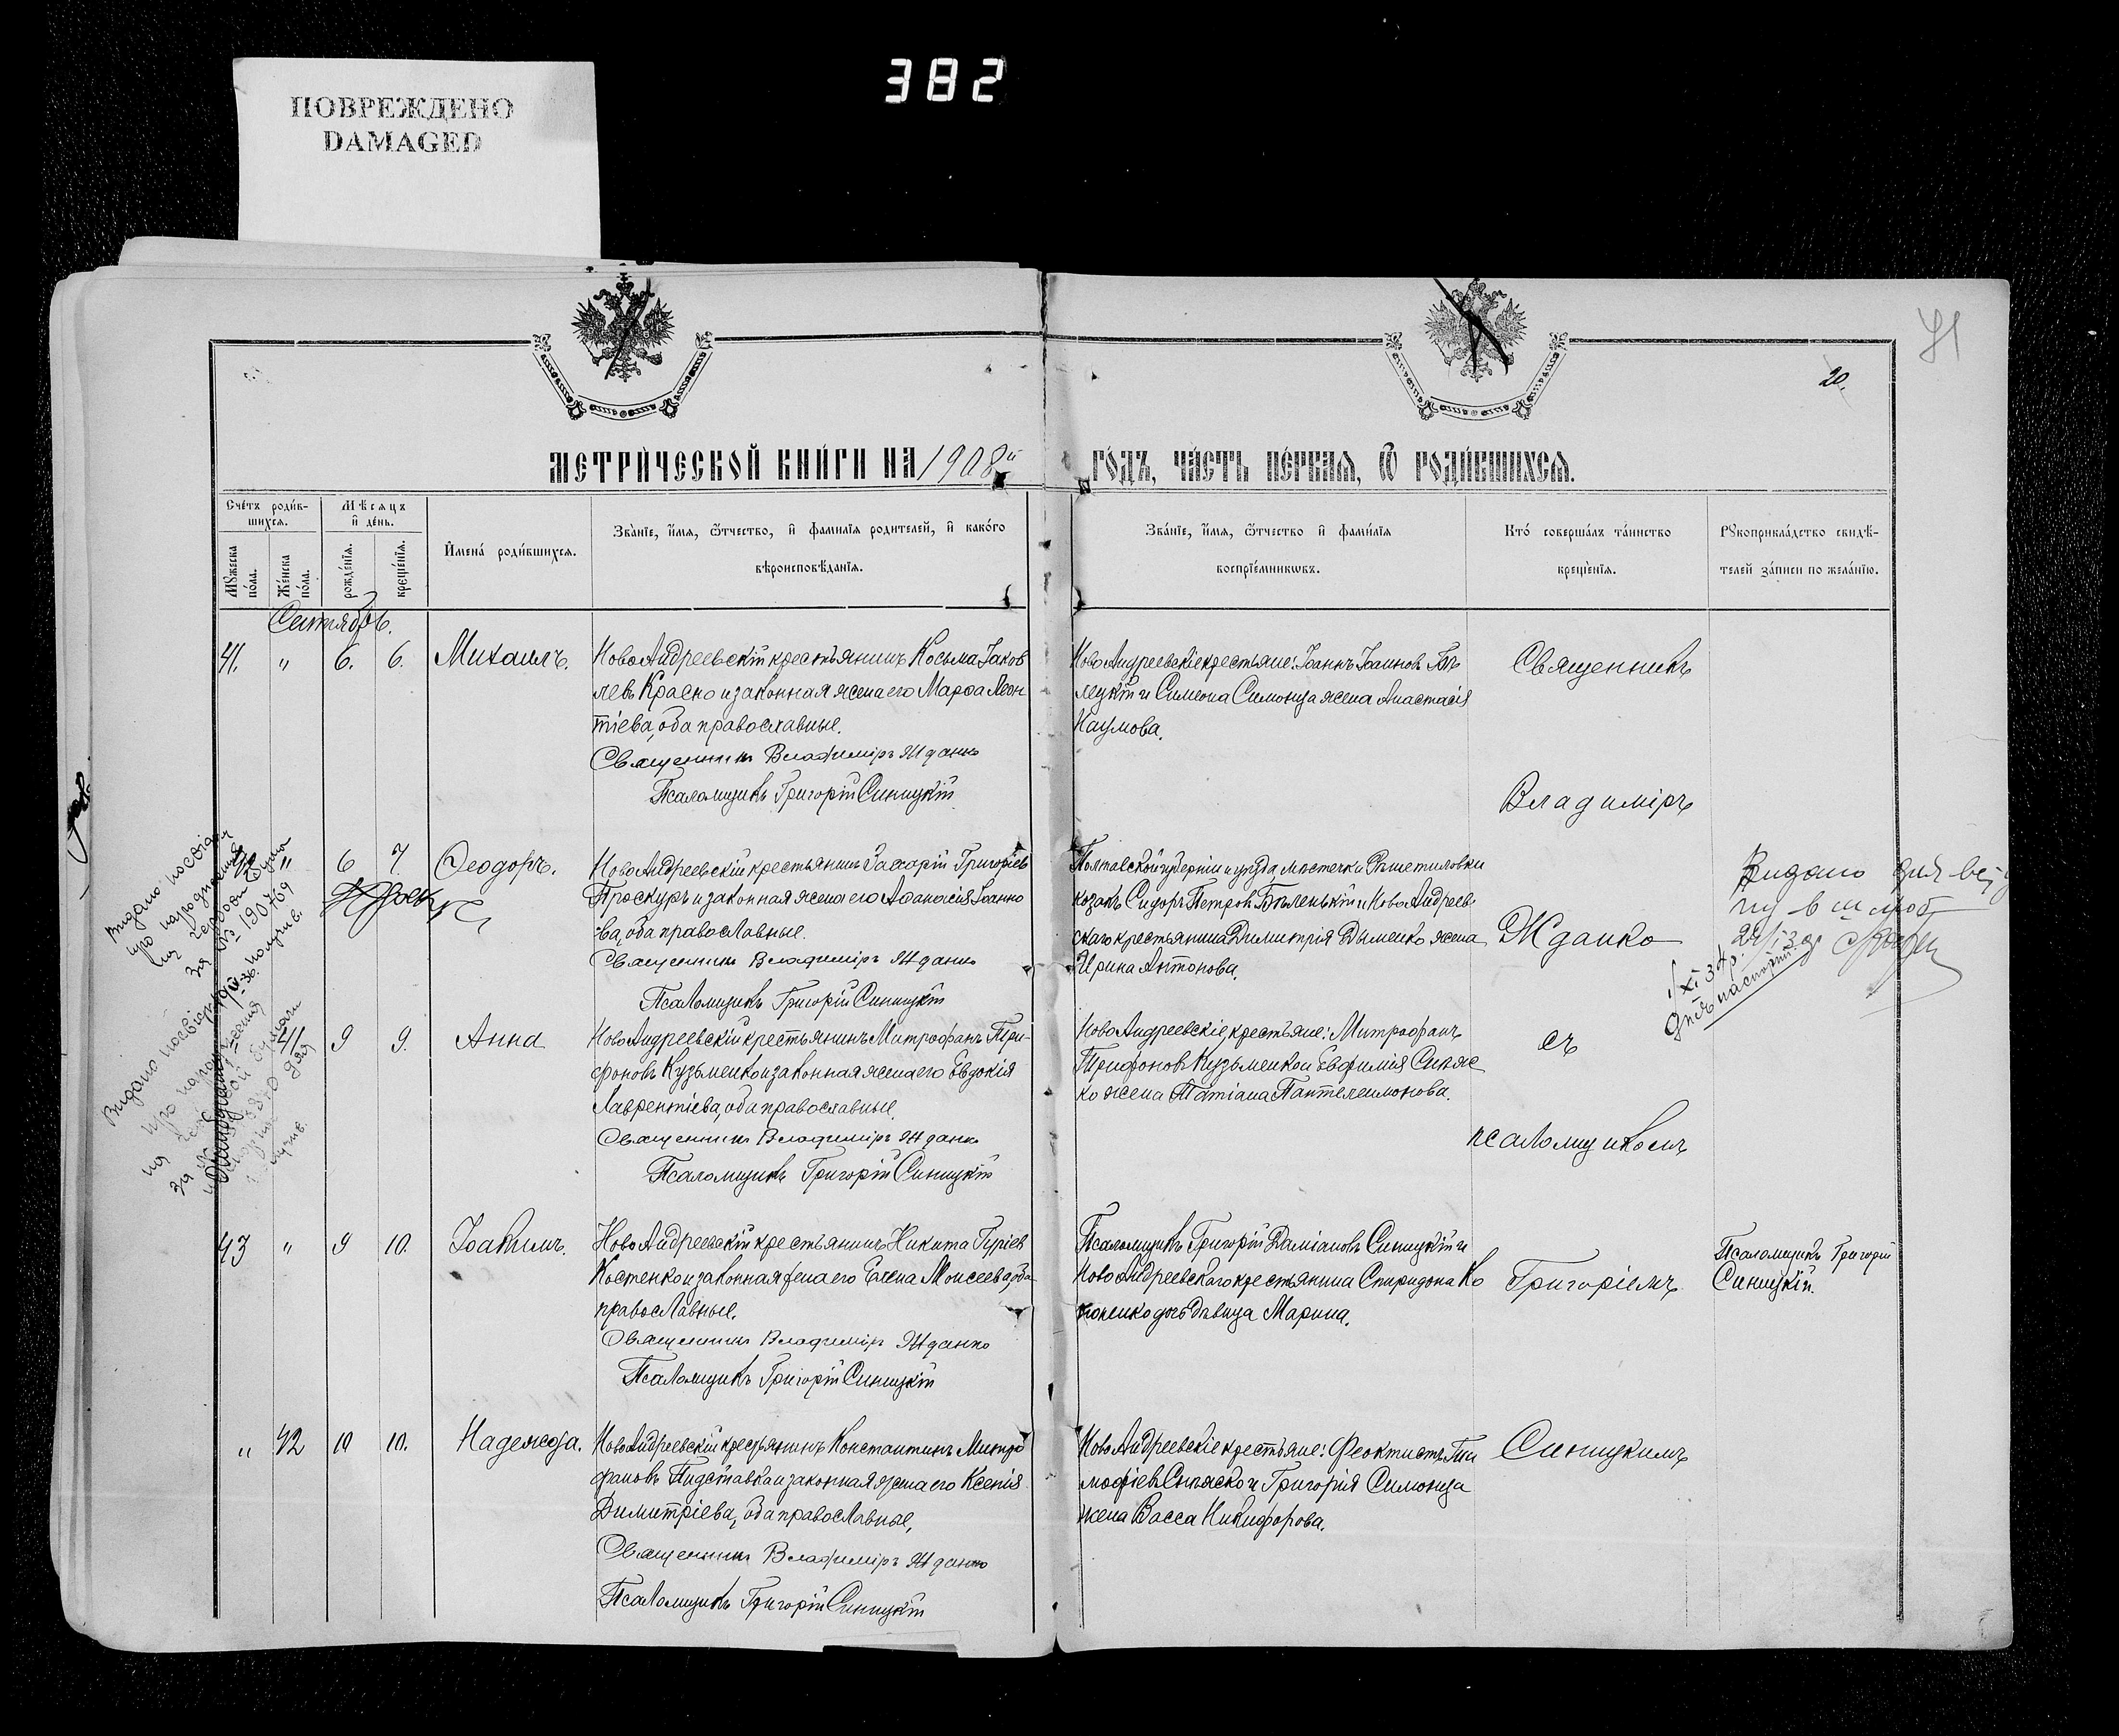 382
ПОВРЕЖДЕНО
DAMAGED
41
20.
МЕТРИ́ЧЕСКОЙ КНИ́ГИ НА 1908й ГО́ДЪ, ЧА́СТЬ ПЕ́РВАЯ, Ѽ РОДИ́ВШИХСЯ.
Сче́тъ роди́в-
шихся.
Мѣсяцъ
и де́нь.
Мꙋжеска
по́ла.
Же́нска
по́ла.
рожде́нїя.
креще́нїя.
И҆мена́ роди́вшихся.
Зва́нїе, и҆́мя, ѻ҆́тчество, и҆ фами́лїя родителей, и҆ како́го
вѣроисповѣ́данїя.
Зва́нїе, и҆́мя, ѻ҆́тчество и҆ фами́лїя
воспрїе́мниковъ.
Кто́ соверша́лъ та́инство
креще́нїя.
Рꙋкоприкла́дство свидѣ́-
телей за́писи по жела́нїю.
Сентябрь.
41. " 6. 6. Михаилъ.
НовоАндреевскій крестьянинъ Косьма Іаков
левъ Краско и законная жена его Марѳа Леон
тіева, оба православные.
Священникъ Владиміръ Жданко
Псаломщикъ Григорій Синицкій
НовоАндреевскіе крестьяне: Іоаннъ Іоанновъ Бѣ
лецкій и Симеона Симонца жена Анастасія
Наумова.
Священникъ
Владиміръ
42 " 6 7. Ѳеодоръ.
НовоАндреевскій крестьянинъ Захарій Григоріев
Проскуръ и законная жена его Аѳанасія Іоанно
ва, оба православные.
Священникъ Владиміръ Жданко
Псаломщикъ Григорій Синицкій
Полтавской губерніи и уѣзда, мѣстечка Рѣшетиловки
козакъ Сидоръ Петровъ Бѣленькій и НовоАндреев-
скаго крестьянина Димитрія Дыменко жена
Ирина Антонова.
Жданко
Видано для
24/I 3
1/XI 34р.
для паспорт
Видано посвідку
про народження
за № 190769
41 9 9. Анна
НовоАндреевскій крестьянинъ Митрофанъ Три-
фоновъ Кузьменко и законная жена его Евдокія
Лаврентіева, оба православные.
Священникъ Владиміръ Жданко
Псаломщикъ Григорій Синицкій
НовоАндреевскіе крестьяне: Митрофанъ
Трифоновъ Кузьменко и Евфимія Сняж
ко жена Татіана Пантелеимонова.
съ
псаломщикомъ
Видано посвідку
про народження
43 " 9 10. Іоакимъ.
НовоАндреевскій крестьянинъ Никита Гуріев
Костенко и законная жена его Елена Моисеева, оба
православные.
Священникъ Владиміръ Жданко
Псаломщикъ Григорій Синицкій
Псаломщикъ Григорій Даміановъ Синицкій и
НовоАндреевскаго крестьянина Спиридона Ко
ноненко дочь дѣвица Марина.
Григоріемъ
Псаломщикъ Григорій
Синицкій.
" 42 10 10. Надежда.
НовоАндреевскій крестьянинъ Константинъ Митро
фановъ Пидставка и законная жена его Ксенія
Димитріева, оба православные,
Священникъ Владиміръ Жданко
Псаломщикъ Григорій Синицкій
НовоАндреевскіе крестьяне: Феоктистъ Ти
мофіевъ Сняжко и Григорія Симонца
жена Васса Никифорова.
Синицкимъ